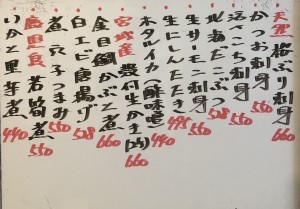 天然 梅ぶり刺身 660
かつお刺身 550
活べこち刺身 550
北海だこぶつ 528
生サーモン刺身
生にしんたたき 495
ホタルイカ(酢味噌) 440
宮城産 殻付生かき(2ヶ) 660
金目鯛かぶと煮 660
白エビ唐揚げ 528
煮穴子つまみ 550
鹿児島 若筍煮 550
いかと里芋煮 440